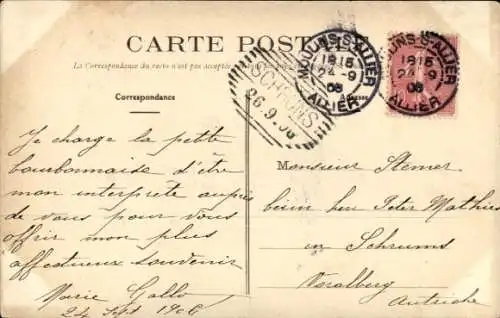 CARTE POSTALE
La Correspondance du recto n'est pas acceptée
Correspondance
Adresse
MOULINS-S-ALLIER
1815
24-9
06
ALLIER
MOULINS-S-ALLIER
1815
24-9
06
ALLIER
SCHRUNS
26.9.06
Je charge la petite
bourbonnaise d'être
mon interprète auprès
de vous pour vous
offrir mon plus
affectueux souvenir
Marie Gallo
24 Sept 1906
Monsieur Stemer
beim hen Peter Mathies
in Schruns
Voralberg
Autriche